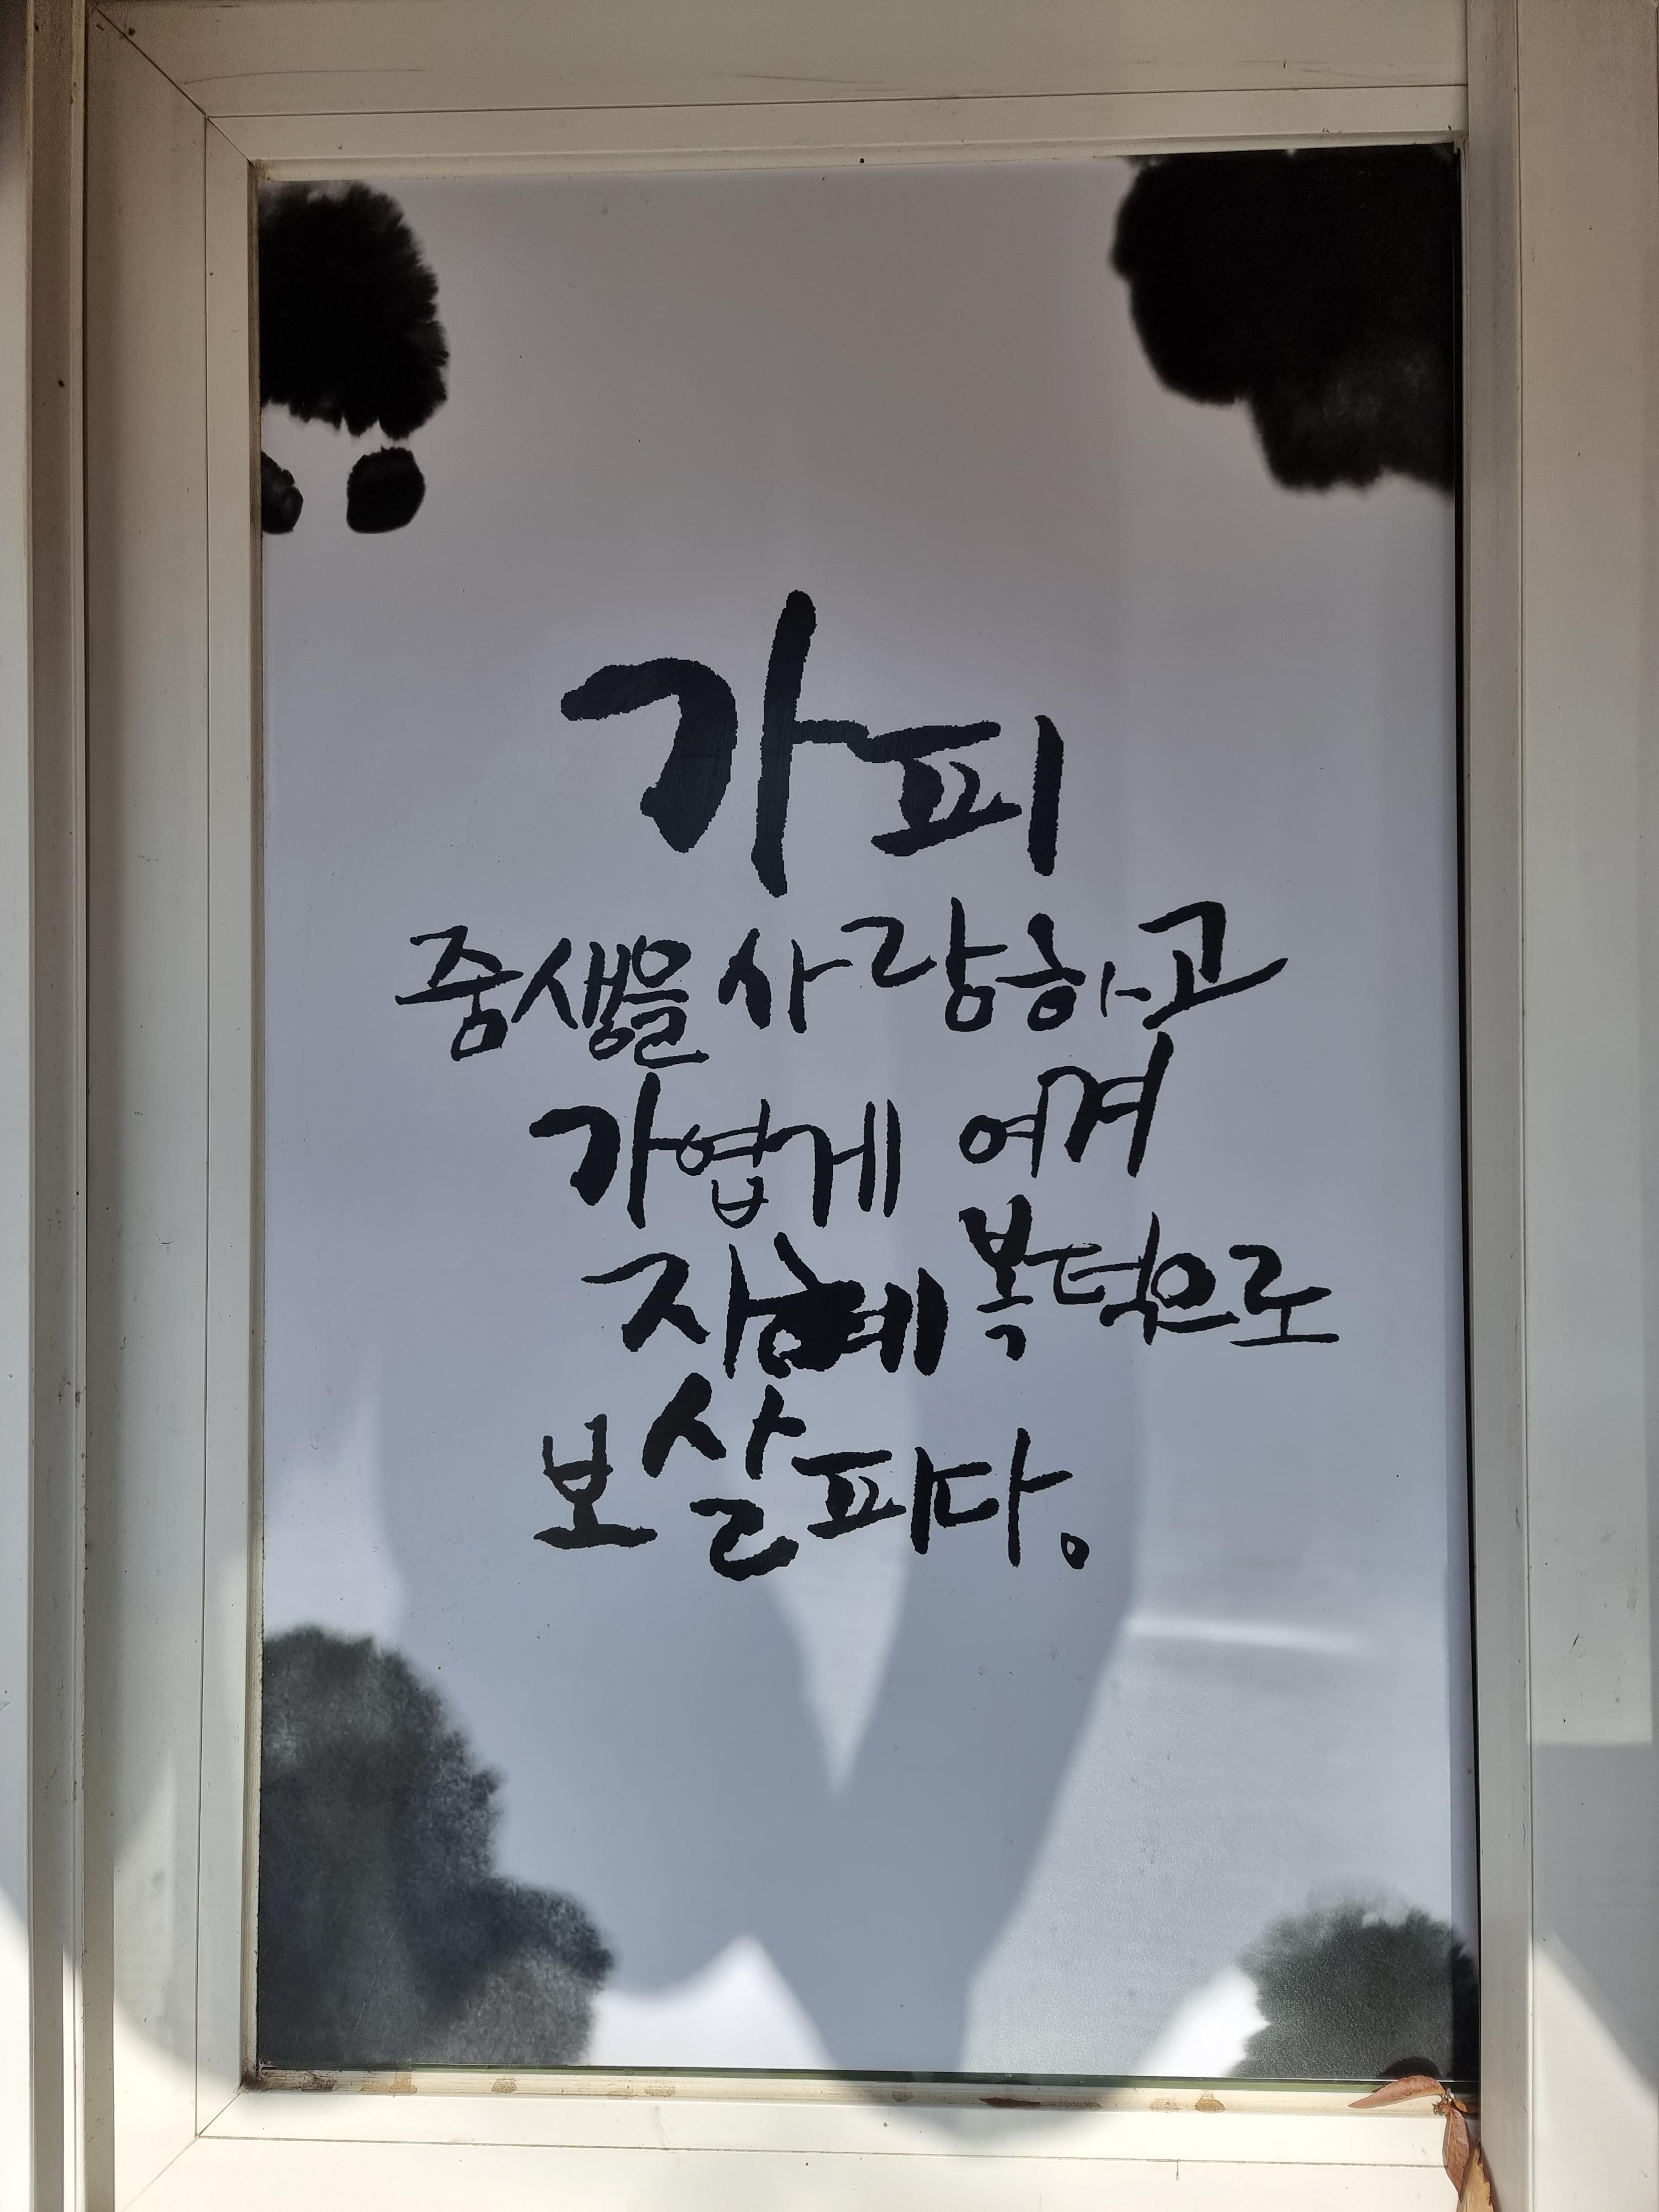 가피
중생을 사랑하고
가엽게 여겨
지혜 복덕으로
보살피다.